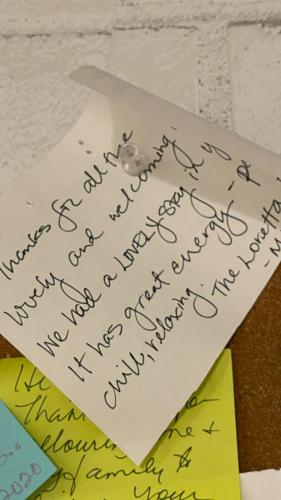 Thanks for all the
lovely and welcoming.
We had a LOVELY stay in y
It has great energy - pe
chill, relaxing.
The Loretta
- M
Than
&
family
your
2020